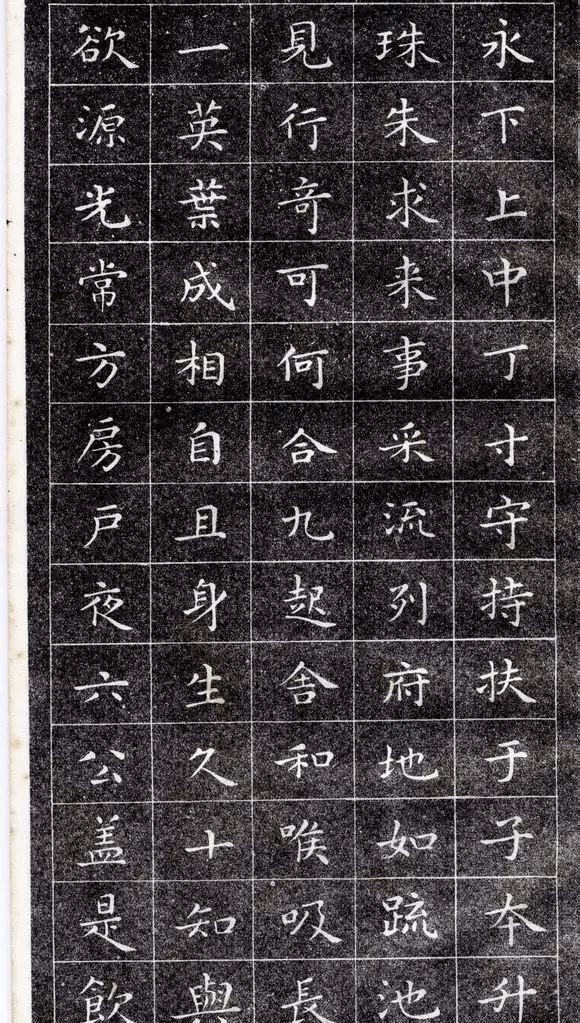 永下上中丁寸守持扶于子本升
珠朱求来事采流列府地如疏池
見行奇可何合九起舍和喉吸長
一英葉成相自且身生久十知與
欲源光常方房戶夜六公盖是飲